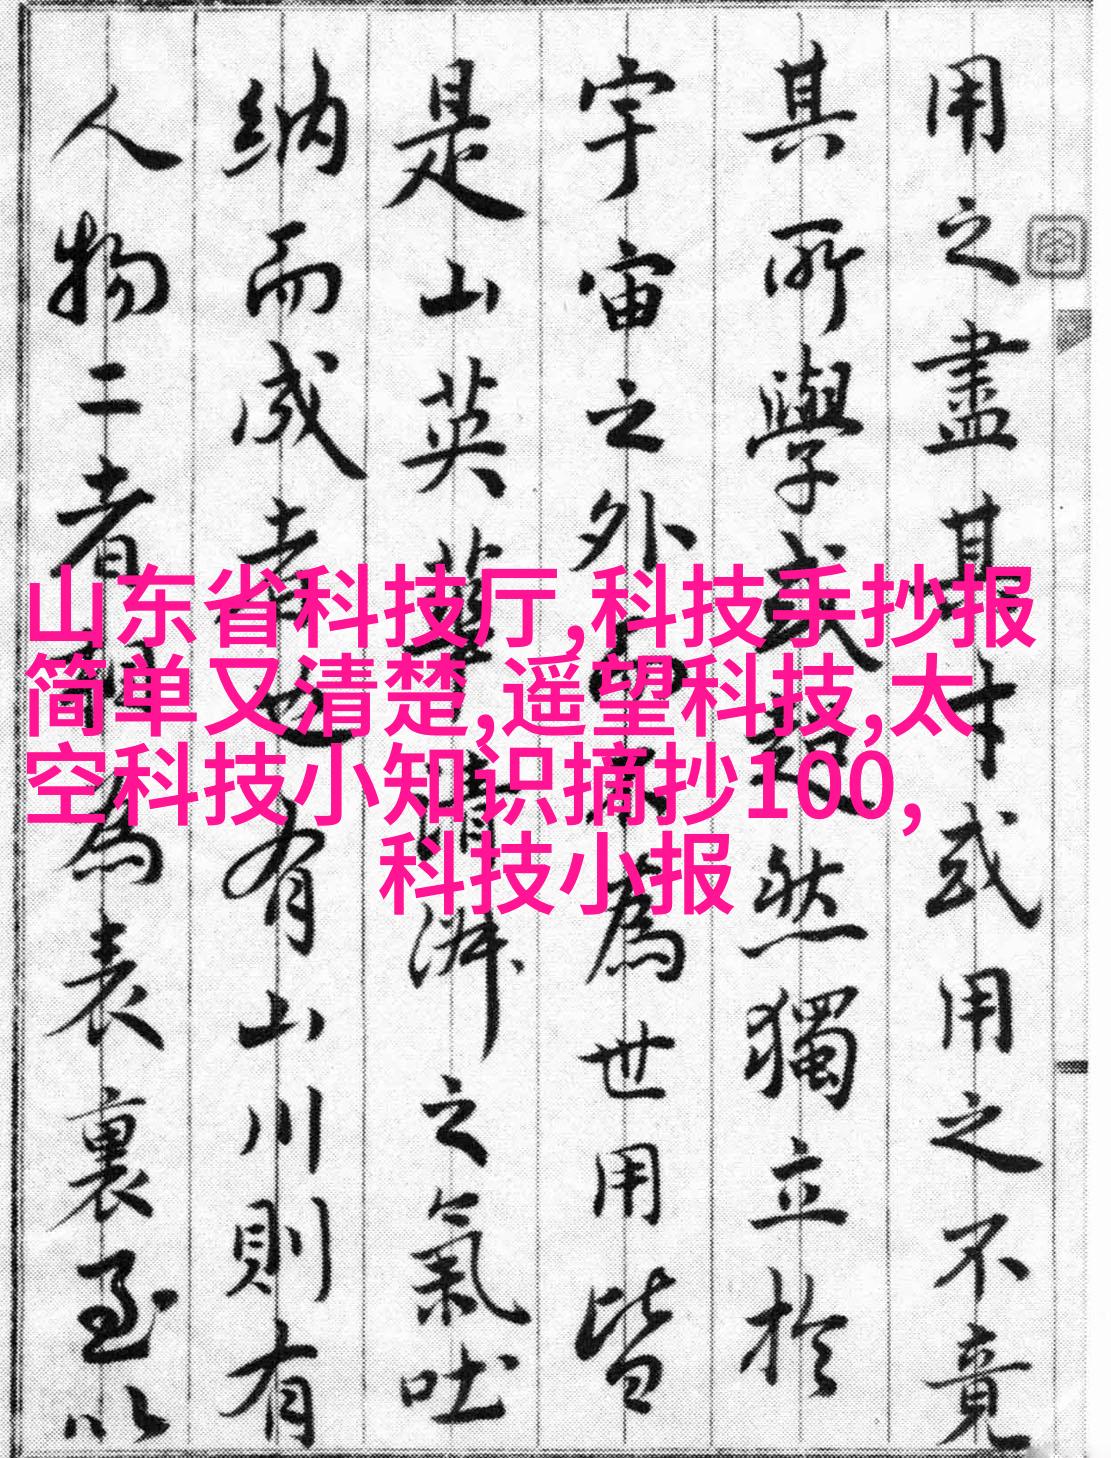 用之盡其才或用之不竟
其所學或超然獨立於
宇宙之外而不為世用皆
是山英華清淑之氣吐
納而成者也有山川則有
人物二者相為表裏至以
山东省科技厅,科技手抄报
简单又清楚,遥望科技,太
空科技小知识摘抄100,
科技小报